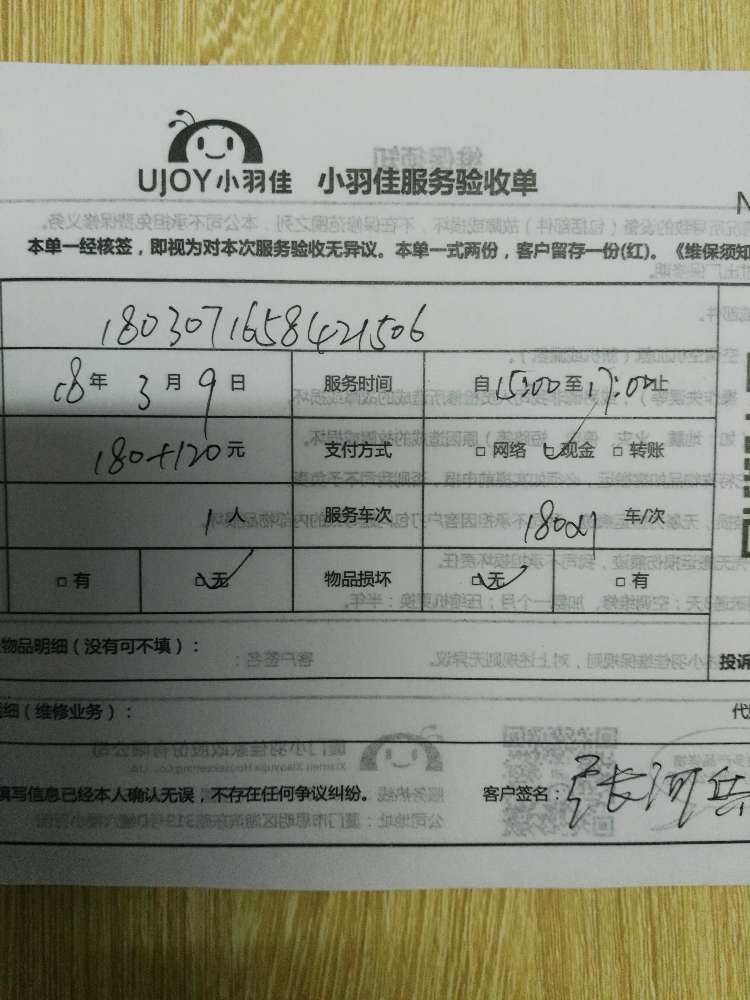 UJOY小羽佳 小羽佳服务验收单
N
本单一经核签，即视为对本次服务验收无异议。本单一式两份，客户留存一份(红)。《维保须知
1803071658421506
18年3月9日 服务时间 自15:00至17:00止
180+120元 支付方式 □网络 ☑现金 □转账
1人 服务车次 车/次
□有 ☑无 物品损坏 ☑无 □有
物品明细（没有可不填）： 投诉
细（维修业务）： 代
填写信息已经本人确认无误，不存在任何争议纠纷。 客户签名：张河兵